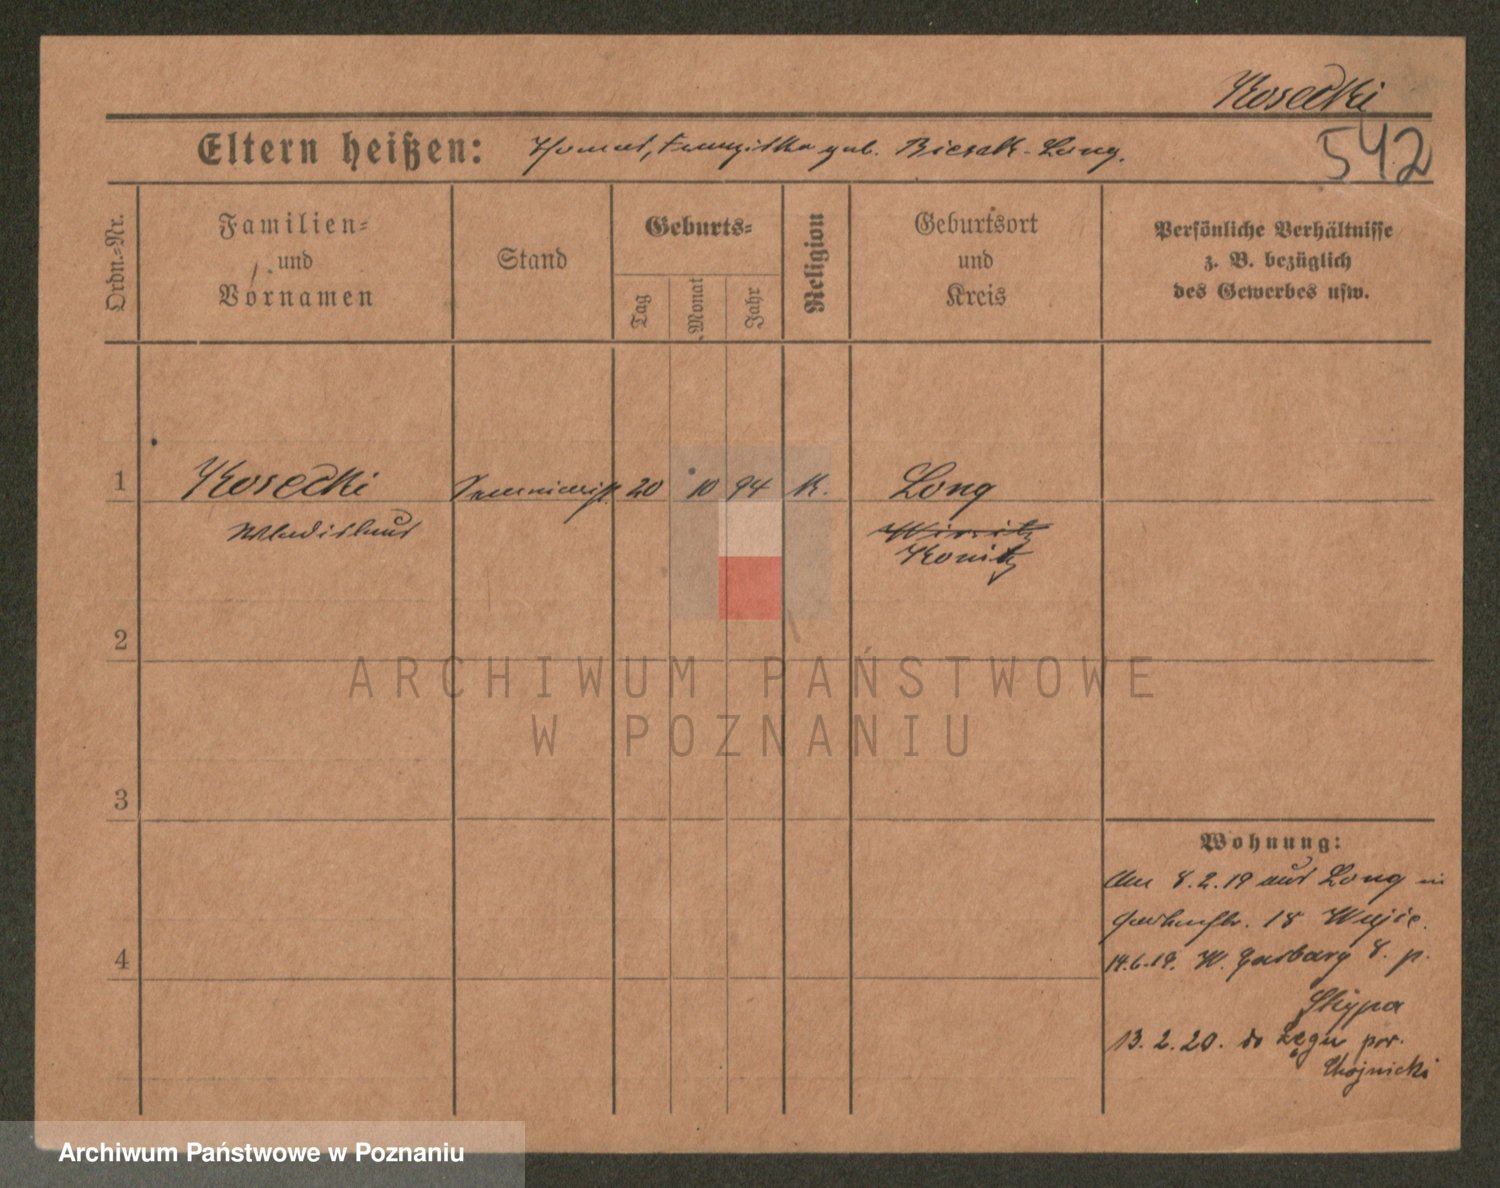 Kosecki
542
Eltern heißen: Thomas, Franziska geb. Bierak - Long.
Ordn.=Nr.
Familien=
und
Vornamen
Stand
Geburts=
Tag
Monat
Jahr
Religion
Geburtsort
und
Kreis
Persönliche Verhältnisse
z. B. bezüglich
des Gewerbes usw.
1 Kosecki 20 10 94 K. Long
Wladislaus Wirsitz
Konitz
2
ARCHIWUM PAŃSTWOWE
W POZNANIU
3
Wohnung:
Am 8.2.19 aus Long in
18
4
14.6.19. W. Garbary 8. p.
Skrypa
13.2.20. do Łęgu pow.
Chojnicki
Archiwum Państwowe w Poznaniu